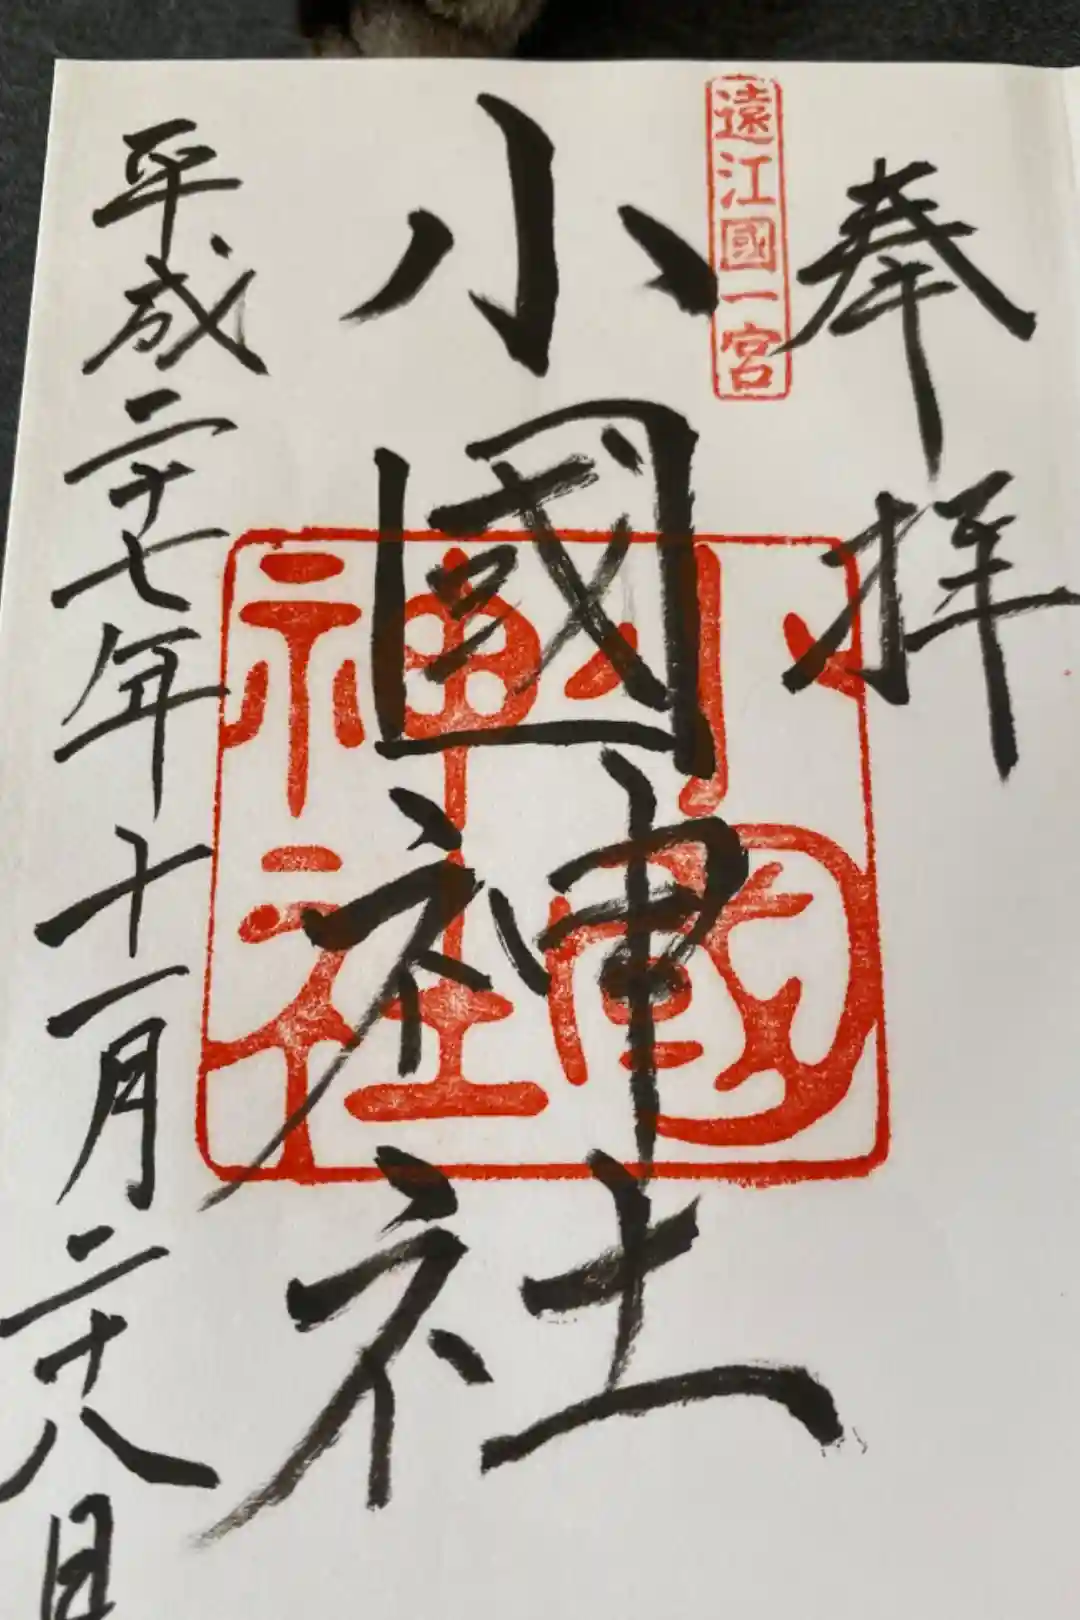 奉拝
遠江國一宮
小國神社
小國
神社
平成二十七年十一月二十八日